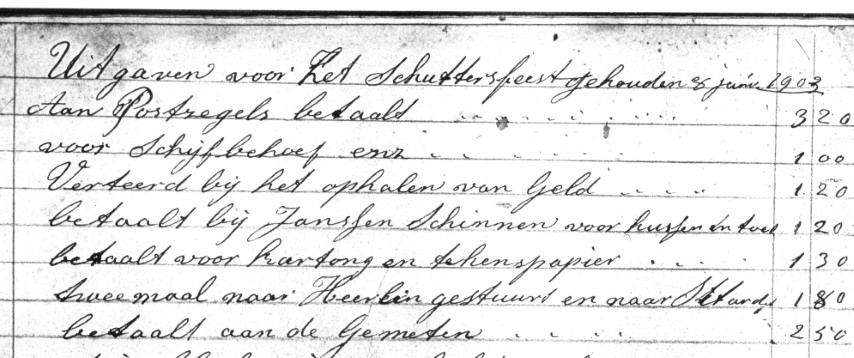 Uitgaven voor het Schuttersfeest gehouden 8 juni 1903
Aan Postzegels betaalt 3 20
voor Schijfbehoef enz 1 00
Verteerd bij het ophalen van Geld 1 20
betaalt bij Janssen Schinnen voor 1 20
betaalt voor kartong en tekenspapier 1 30
tweemaal naar Heerlen gestuurt en naar Sittard 1 80
betaalt aan de Gemeten 2 50